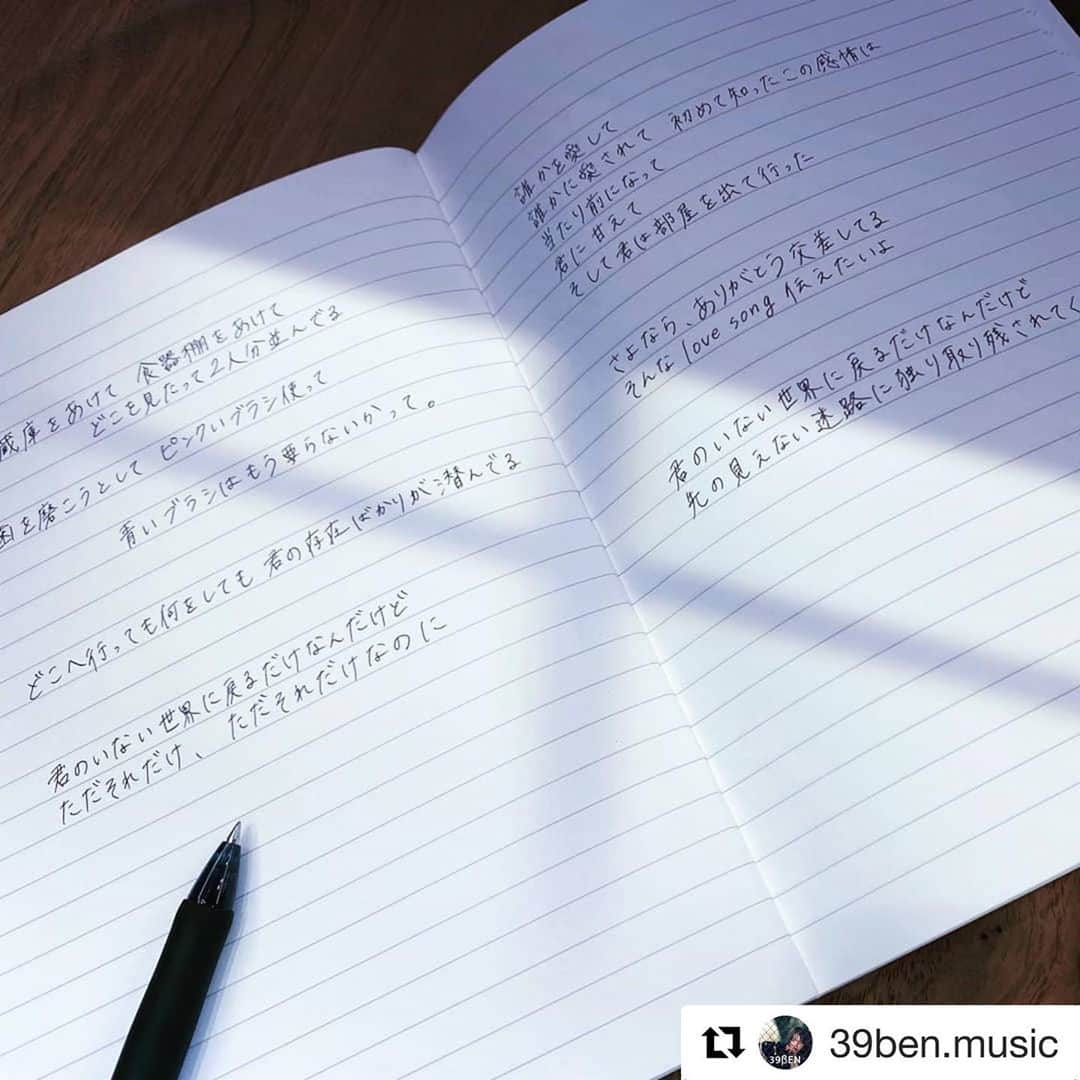 蔵庫をあけて 食器棚をあけて
どこを見たって2人分並んでる
歯を磨こうとして ピンクいブラシ使って
青いブラシはもう要らないかって。
どこへ行っても何をしても 君の存在ばかりが潜んでる
君のいない世界に戻るだけなんだけど
ただそれだけ、ただそれだけなのに
誰かを愛して
誰かに愛されて 初めて知ったこの感情は
当たり前になって
君に甘えて
そして君は部屋を出て行った
さよなら、ありがとう交差してる
そんな love song 伝えたいよ
君のいない世界に戻るだけなんだけど
先の見えない迷路に独り取り残されてく
39BEN
39ben.music